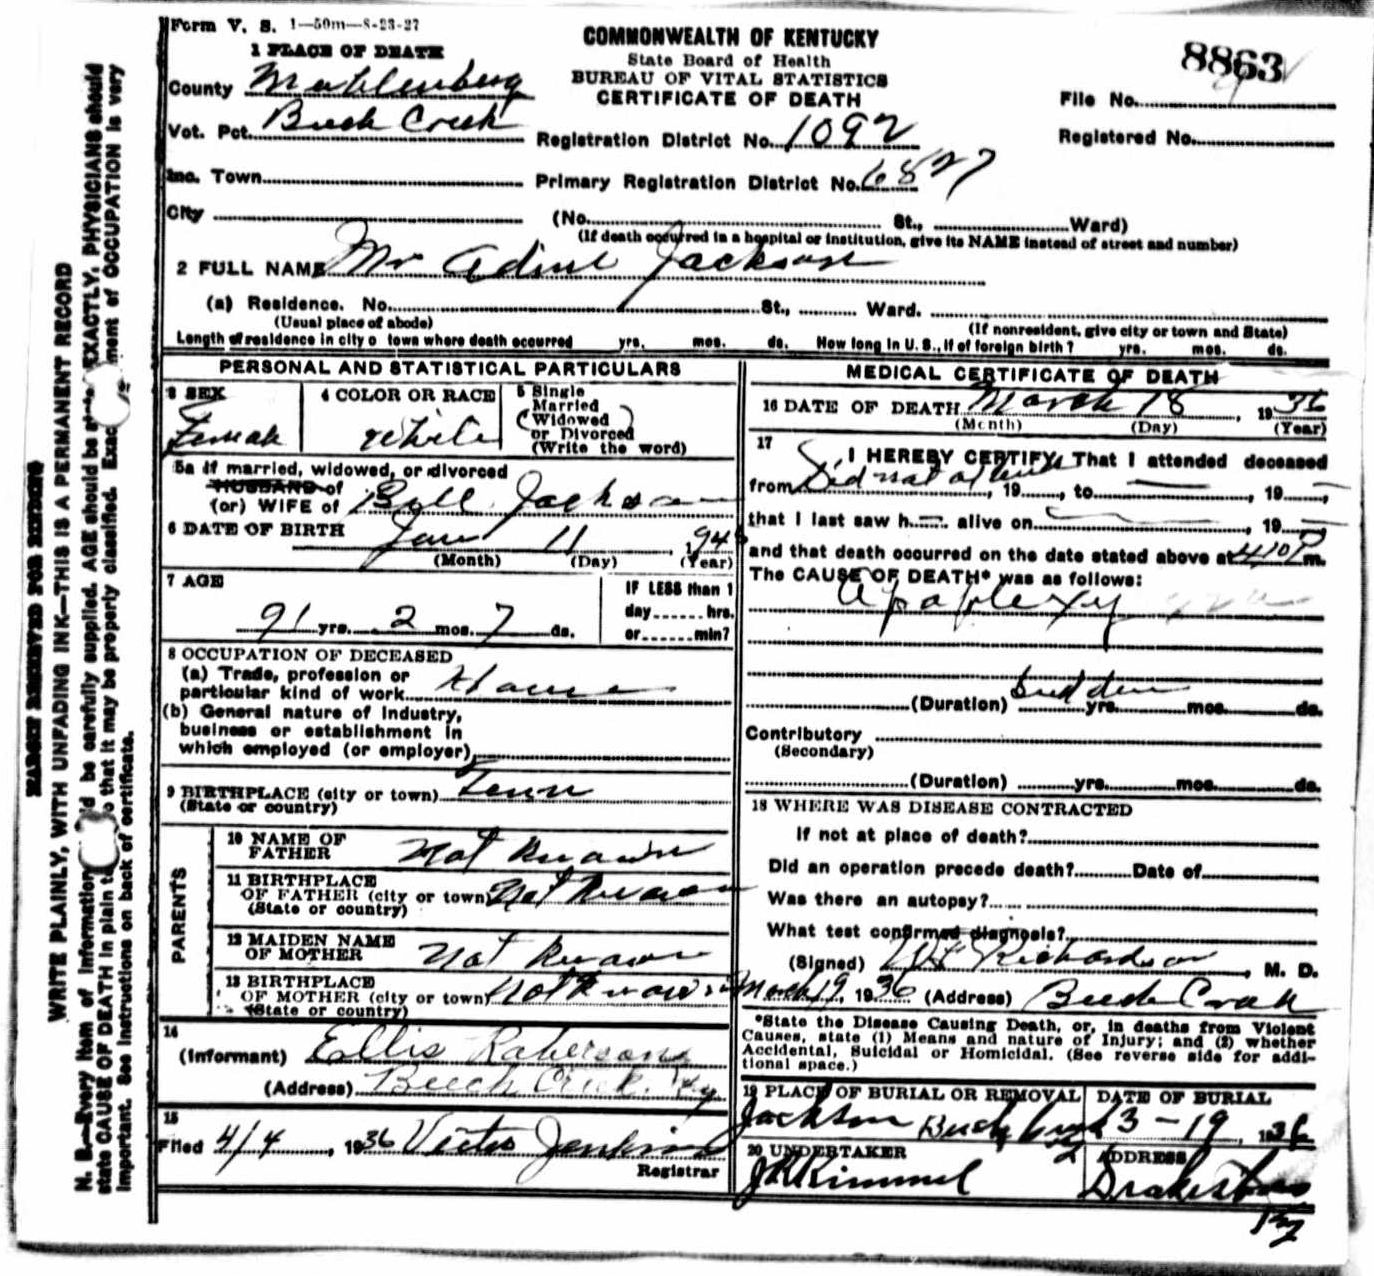 Form V. S. 1—50m—8-23-27
COMMONWEALTH OF KENTUCKY
State Board of Health
BUREAU OF VITAL STATISTICS
CERTIFICATE OF DEATH
8863
File No.
Registered No.
1 PLACE OF DEATH
County Muhlenberg
Vot. Pct. Beech Creek
Registration District No. 1092
Inc. Town
Primary Registration District No. 6827
City (No. St., Ward)
(If death occurred in a hospital or institution, give its NAME instead of street and number)
2 FULL NAME Mrs Jackson
(a) Residence. No. St., Ward.
(Usual place of abode) (If nonresident, give city or town and State)
Length of residence in city o town where death occurred yrs. mos. ds. How long in U. S., if of foreign birth? yrs. mos. ds.
PERSONAL AND STATISTICAL PARTICULARS
3 SEX
Female
4 COLOR OR RACE
white
5 Single
Married
(Widowed)
or Divorced
(Write the word)
5a If married, widowed, or divorced
HUSBAND of
(or) WIFE of Bill Jackson
6 DATE OF BIRTH Jan 11
(Month) (Day) (Year)
7 AGE
91 yrs. 2 mos. 7 ds.
IF LESS than 1
day hrs.
or min?
8 OCCUPATION OF DECEASED
(a) Trade, profession or
particular kind of work Home
(b) General nature of industry,
business or establishment in
which employed (or employer)
9 BIRTHPLACE (city or town) Tenn
(State or country)
PARENTS
10 NAME OF
FATHER Not Known
11 BIRTHPLACE
OF FATHER (city or town) Not Known
(State or country)
12 MAIDEN NAME
OF MOTHER Not Known
13 BIRTHPLACE
OF MOTHER (city or town) Not Known
(State or country)
14
(Informant) Ellis Roberson
(Address) Beech Creek, Ky
15
Filed 4/4, 1936 Jenkins
Registrar
MEDICAL CERTIFICATE OF DEATH
16 DATE OF DEATH March 18, 1936
(Month) (Day) (Year)
17
I HEREBY CERTIFY, That I attended deceased
from Did not attend, 19, to, 19
that I last saw h alive on, 19
and that death occurred on the date stated above at 410 P m.
The CAUSE OF DEATH* was as follows:
apoplexy
(Duration) sudden yrs. mos. ds.
Contributory
(Secondary)
(Duration) yrs. mos. ds.
18 WHERE WAS DISEASE CONTRACTED
If not at place of death?
Did an operation precede death? Date of
Was there an autopsy?
What test confirmed diagnosis?
(Signed) Richardson, M. D.
March 19, 1936 (Address) Beech Creek
*State the Disease Causing Death, or, in deaths from Violent
Causes, state (1) Means and nature of Injury; and (2) whether
Accidental, Suicidal or Homicidal. (See reverse side for addi-
tional space.)
19 PLACE OF BURIAL OR REMOVAL
Jackson
DATE OF BURIAL
3-19, 1936
20 UNDERTAKER
Kimmel
ADDRESS
Drakesboro
Ky
MARGIN RESERVED FOR BINDING
WRITE PLAINLY, WITH UNFADING INK—THIS IS A PERMANENT RECORD
N. B.—Every item of information be carefully supplied. AGE should be EXACTLY. PHYSICIANS should
state CAUSE OF DEATH in plain so that it may be properly classified. Exac ment of OCCUPATION is very
important. See instructions on back of certificate.